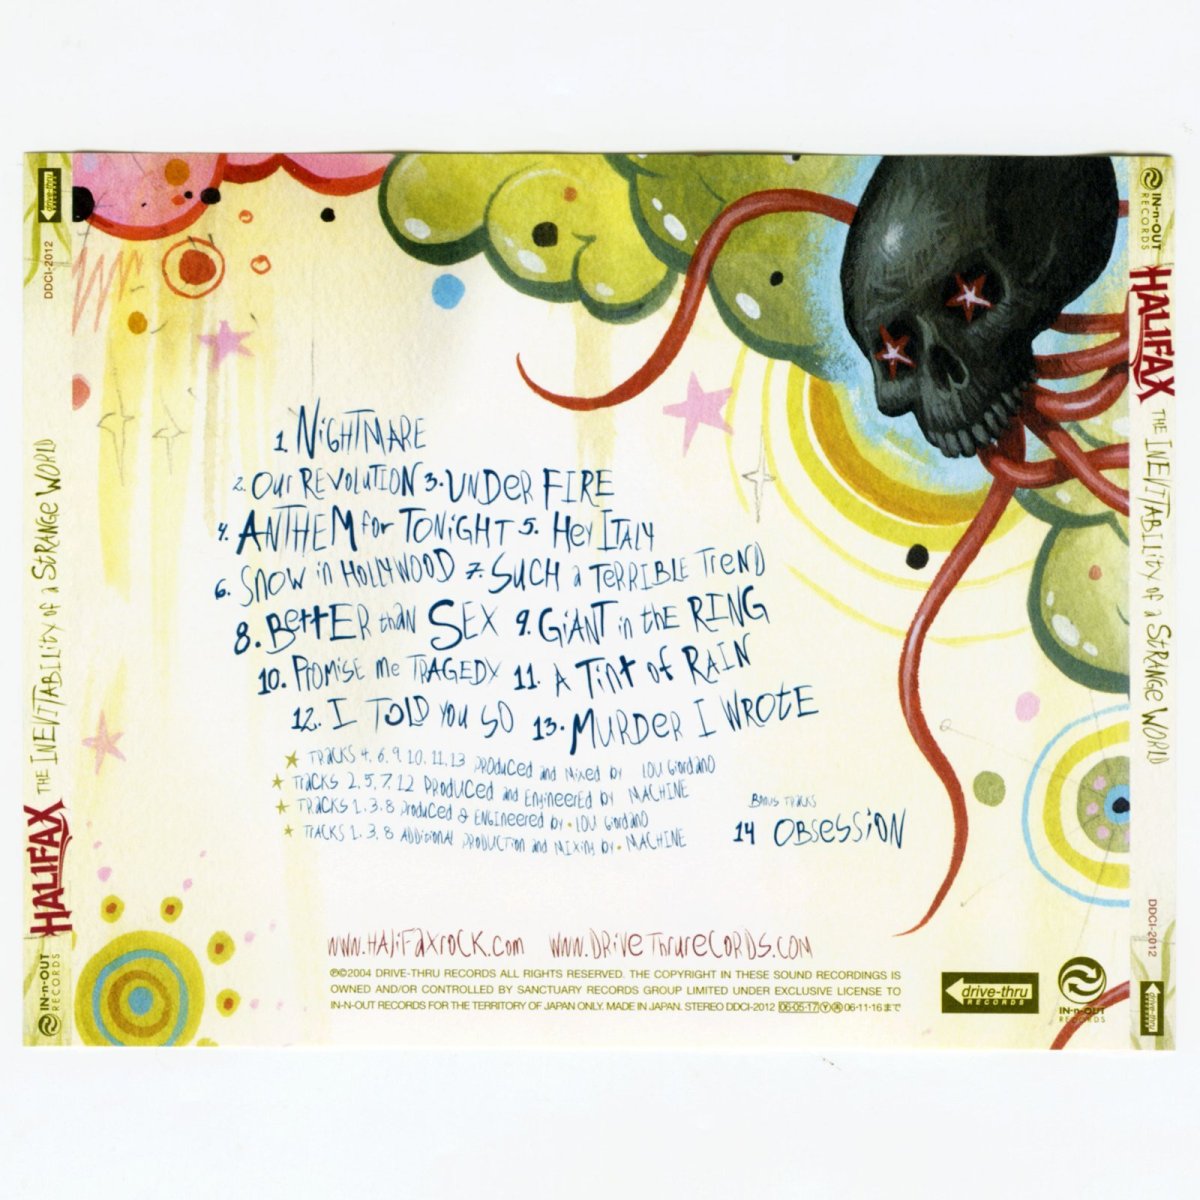 drive-thru
RECORDS
DDCI-2012
THE INEVITABILITY of a STRANGE WORLD
HALIFAX
IN-n-OUT
RECORDS
1. NiGHTMARE
2. Our REVOLUTION 3. UNDER FIRE
4. ANTHEM for TONiGHT 5. Hey ITALY
6. Snow in HOLLYWOOD 7. SUCH a TERRIBLE TrenD
8. BettER than SEX 9. GiANT in thE RING
10. PROMISE me TRAGEDY 11. A Tint of RAIN
12. I TOLD you SO 13. MURDER I WROTE
TRacKS 4, 6, 9, 10, 11, 13 PRODUCED and Mixed by LOU Giordano
TRacKS 2, 5, 7, 12 PRODUCED and EngineerEd by MACHINE
TRacKS 1, 3, 8 Produced & ENGineered by • LOU Giordano
TRacKS 1, 3, 8 ADDitional PRODUCTION and MIXing by • MACHINE
BONUS TRACKS
14 OBSESSiON
www.HALiFaxroCK.com www.DRiveThrureCORDS.com
℗©2004 DRIVE-THRU RECORDS ALL RIGHTS RESERVED. THE COPYRIGHT IN THESE SOUND RECORDINGS IS
OWNED AND/OR CONTROLLED BY SANCTUARY RECORDS GROUP LIMITED UNDER EXCLUSIVE LICENSE TO
IN-N-OUT RECORDS FOR THE TERRITORY OF JAPAN ONLY. MADE IN JAPAN. STEREO DDCI-2012 06·05·17 Ⓨ 06·11·16まで
drive-thru
RECORDS
IN-n-OUT
RECORDS
IN-n-OUT
RECORDS
HALIFAX
THE INEVITABILITY of a STRANGE WORLD
DDCI-2012
drive-thru
RECORDS